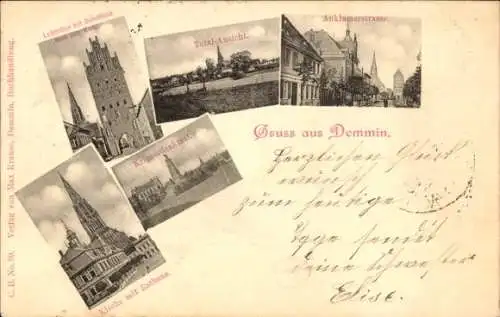 Luisenthor mit Schulhaus
Total-Ansicht.
Anklamerstrasse.
Kriegerdenkmal.
Kirche mit Rathaus.
Gruss aus Demmin.
Herzlichen Glück
wunsch
zum heutige
Tage sendet
deine Schwester
Elise.
C. B. No. 80. Verlag von Max Krause, Demmin, Buchhandlung.